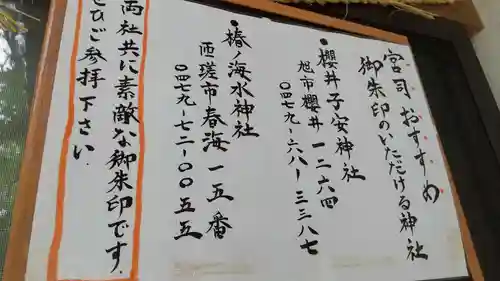 宮司 おすすめ
御朱印のいただける神社
●櫻井子安神社
旭市櫻井一二六四
〇四七九-六八-三三八七
●椿ノ海水神社
匝瑳市春海一五番
〇四七九-七二-〇〇五五
両社共に素敵な御朱印です
ぜひご参拝下さい.